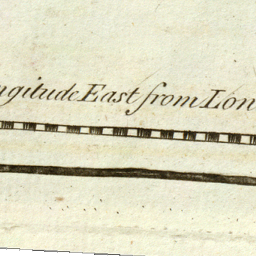 ngitude East from Lon